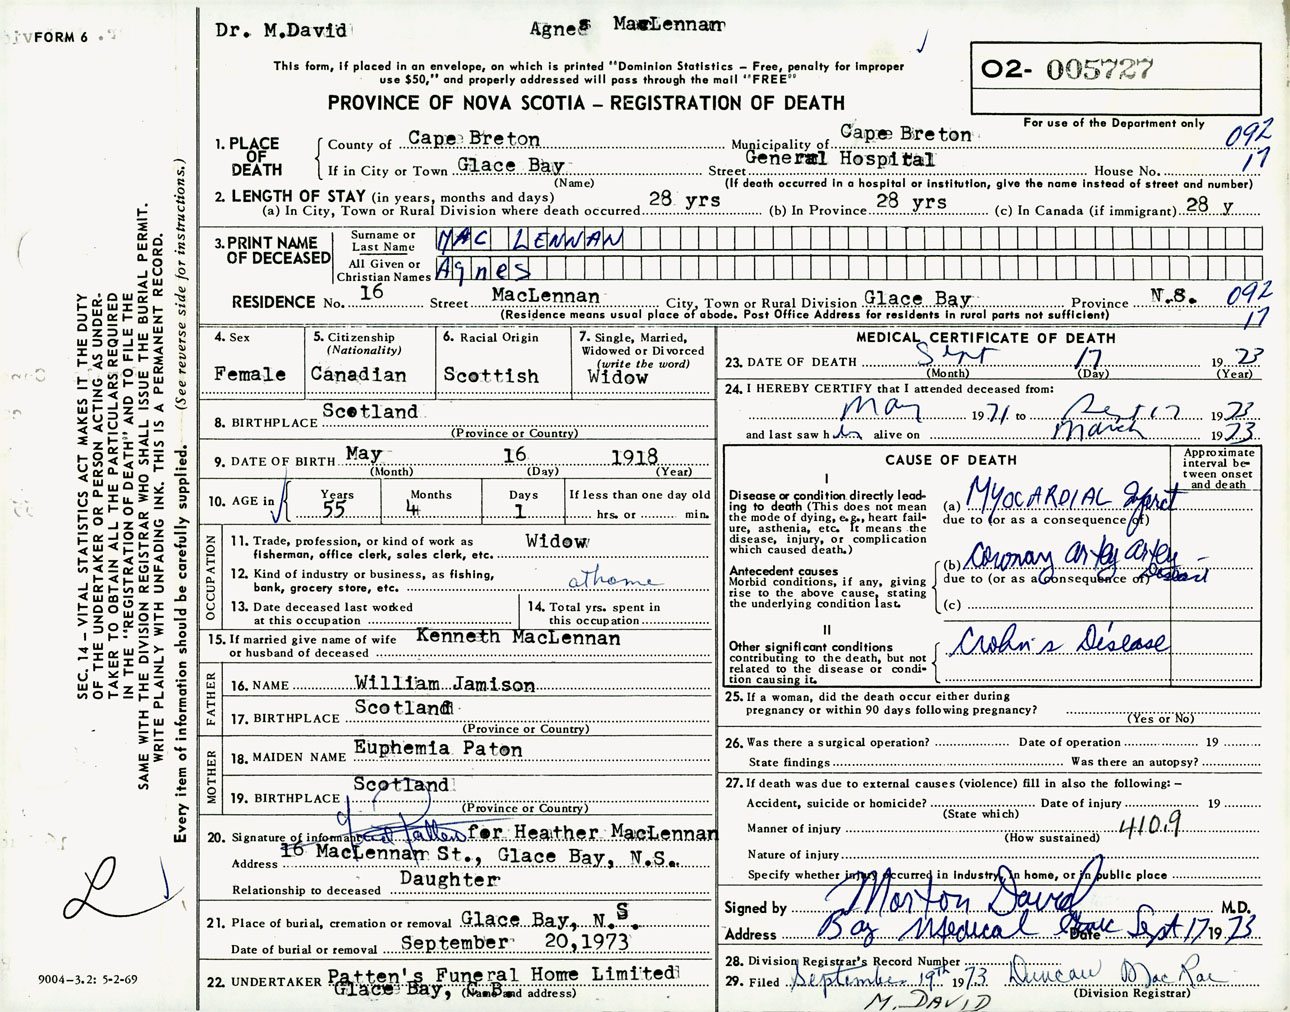 FORM 6
Dr. M.David Agnes MacLennan
This form, if placed in an envelope, on which is printed "Dominion Statistics – Free, penalty for improper
use $50," and properly addressed will pass through the mail "FREE"
PROVINCE OF NOVA SCOTIA – REGISTRATION OF DEATH
O2- 005727
For use of the Department only
1. PLACE OF DEATH
County of Cape Breton Municipality of Cape Breton 092
If in City or Town Glace Bay Street General Hospital House No. 17
(Name) (If death occurred in a hospital or institution, give the name instead of street and number)
2. LENGTH OF STAY (in years, months and days)
(a) In City, Town or Rural Division where death occurred 28 yrs (b) In Province 28 yrs (c) In Canada (if immigrant) 28 y
3. PRINT NAME OF DECEASED
Surname or Last Name MAC LENNAN
All Given or Christian Names Agnes
RESIDENCE No. 16 Street MacLennan City, Town or Rural Division Glace Bay Province N.S. 092
(Residence means usual place of abode. Post Office Address for residents in rural parts not sufficient) 17
4. Sex
Female
5. Citizenship
(Nationality)
Canadian
6. Racial Origin
Scottish
7. Single, Married,
Widowed or Divorced
(write the word)
Widow
8. BIRTHPLACE Scotland
(Province or Country)
9. DATE OF BIRTH May 16 1918
(Month) (Day) (Year)
10. AGE in Years 55 Months 4 Days 1 If less than one day old
hrs. or min.
OCCUPATION
11. Trade, profession, or kind of work as
fisherman, office clerk, sales clerk, etc. Widow
12. Kind of industry or business, as fishing,
bank, grocery store, etc. at home
13. Date deceased last worked
at this occupation
14. Total yrs. spent in
this occupation
15. If married give name of wife
or husband of deceased Kenneth MacLennan
FATHER
16. NAME William Jamison
17. BIRTHPLACE Scotland
(Province or Country)
MOTHER
18. MAIDEN NAME Euphemia Paton
19. BIRTHPLACE Scotland
(Province or Country)
20. Signature of informant Patten for Heather MacLennan
Address 16 MacLennan St., Glace Bay, N.S.
Relationship to deceased Daughter
21. Place of burial, cremation or removal Glace Bay, N.S
Date of burial or removal September 20,1973
22. UNDERTAKER Patten's Funeral Home Limited
Glace Bay, C.B.
(Name and address)
MEDICAL CERTIFICATE OF DEATH
23. DATE OF DEATH Sept 17 1973
(Month) (Day) (Year)
24. I HEREBY CERTIFY that I attended deceased from:
May 1971 to Sept 17 1973
and last saw her alive on March 1973
CAUSE OF DEATH
Approximate
interval be-
tween onset
and death
I
Disease or condition directly lead-
ing to death (This does not mean
the mode of dying, e.g., heart fail-
ure, asthenia, etc. It means the
disease, injury, or complication
which caused death.)
(a) MYOCARDIAL Infarct
due to (or as a consequence of)
Antecedent causes
Morbid conditions, if any, giving
rise to the above cause, stating
the underlying condition last.
(b) Coronary artery artery Disease
due to (or as a consequence of)
(c)
II
Other significant conditions
contributing to the death, but not
related to the disease or condi-
tion causing it.
Crohn's Disease
25. If a woman, did the death occur either during
pregnancy or within 90 days following pregnancy?
(Yes or No)
26. Was there a surgical operation? Date of operation 19
State findings Was there an autopsy?
27. If death was due to external causes (violence) fill in also the following: –
Accident, suicide or homicide? Date of injury 19
(State which)
Manner of injury 410.9
(How sustained)
Nature of injury
Specify whether injury occurred in industry, in home, or in public place
Signed by Morton David M.D.
Address Bay Medical Date Sept 17 1973
28. Division Registrar's Record Number
29. Filed September 19th 1973 Duncan MacRae
(Division Registrar)
M. DAVID
SEC. 14 – VITAL STATISTICS ACT MAKES IT THE DUTY
OF THE UNDERTAKER OR PERSON ACTING AS UNDER-
TAKER TO OBTAIN ALL THE PARTICULARS REQUIRED
IN THE "REGISTRATION OF DEATH" AND TO FILE THE
SAME WITH THE DIVISION REGISTRAR WHO SHALL ISSUE THE BURIAL PERMIT.
WRITE PLAINLY WITH UNFADING INK. THIS IS A PERMANENT RECORD.
Every item of information should be carefully supplied. (See reverse side for instructions.)
L
9004-3.2: 5-2-69